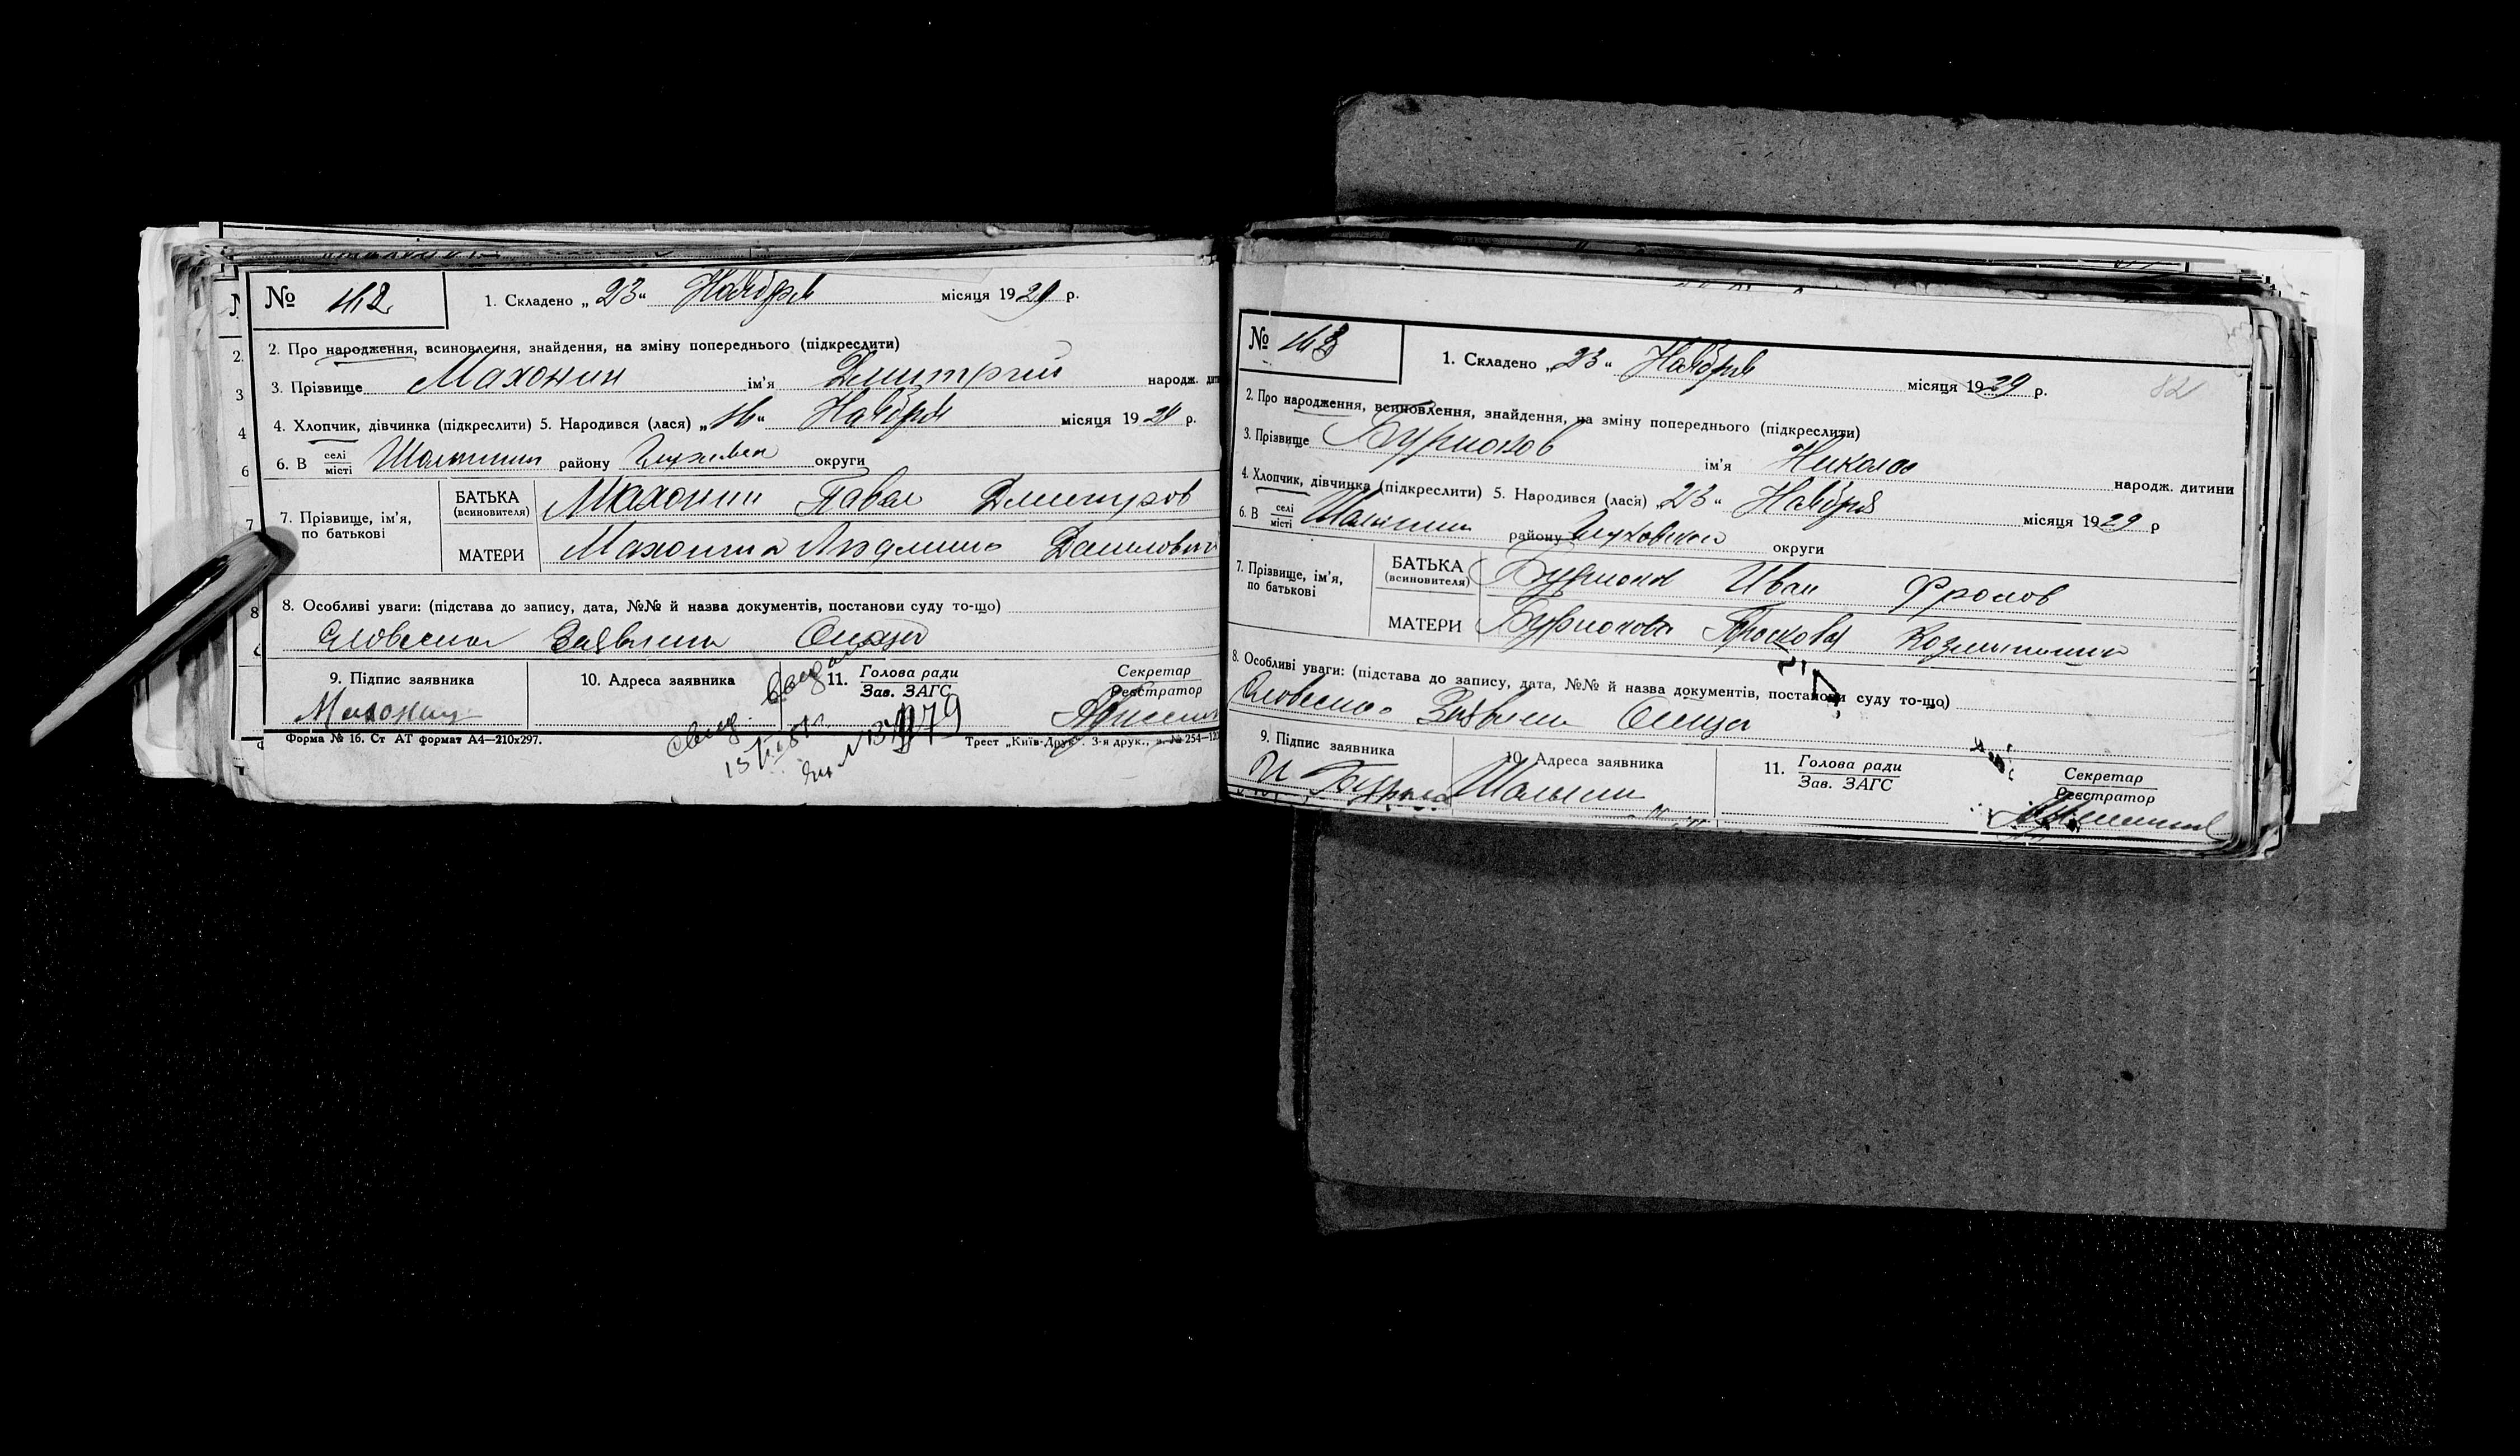 № 42 1. Складено „23“ Ноября місяця 1929 р.
2. Про народження, всиновлення, знайдення, на зміну попереднього (підкреслити)
3. Прізвище Махонин ім'я Дмитрий народж. дит
4. Хлопчик, дівчинка (підкреслити) 5. Народився (лася) „ “ Ноября місяця 1929 р.
6. В селі/місті Шалыгин району округи
7. Прізвище, ім'я, по батькові
БАТЬКА (всиновителя) Махонин Павел Дмитров
МАТЕРИ Махонина Людмила Даниловна
8. Особливі уваги: (підстава до запису, дата, №№ й назва документів, постанови суду то-що)
Словесная Заявления Отца
9. Підпис заявника 10. Адреса заявника 11. Голова ради/Зав. ЗАГС Секретар/Реєстратор
Махонин
Форма № 16. Ст АТ формат А4—210х297. Трест „Київ-Друк“. 3-я друк., з. № 254—12
№ 43 1. Складено „23“ Ноября місяця 1929 р.
82
2. Про народження, всиновлення, знайдення, на зміну попереднього (підкреслити)
3. Прізвище Бурмохов ім'я Николай народж. дитини
4. Хлопчик, дівчинка (підкреслити) 5. Народився (лася) „23“ Ноября місяця 1929 р
6. В селі/місті Шалыгин району Глуховской округи
7. Прізвище, ім'я, по батькові
БАТЬКА (всиновителя) Иван Фролов
МАТЕРИ Бурмохова Просковья Козьминична
8. Особливі уваги: (підстава до запису, дата, №№ й назва документів, постанови суду то-що)
Словесная Заявления Отца
9. Підпис заявника 10. Адреса заявника 11. Голова ради/Зав. ЗАГС Секретар/Реєстратор
И Шалыгин